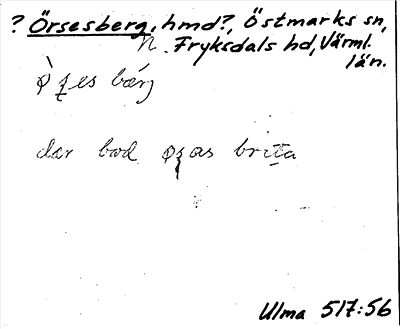 ? Örsesberg, hmd?, Östmarks sn,
N. Fryksdals hd, Värml.
län.
es bærj
dær bod as britta
Ulma 517:56